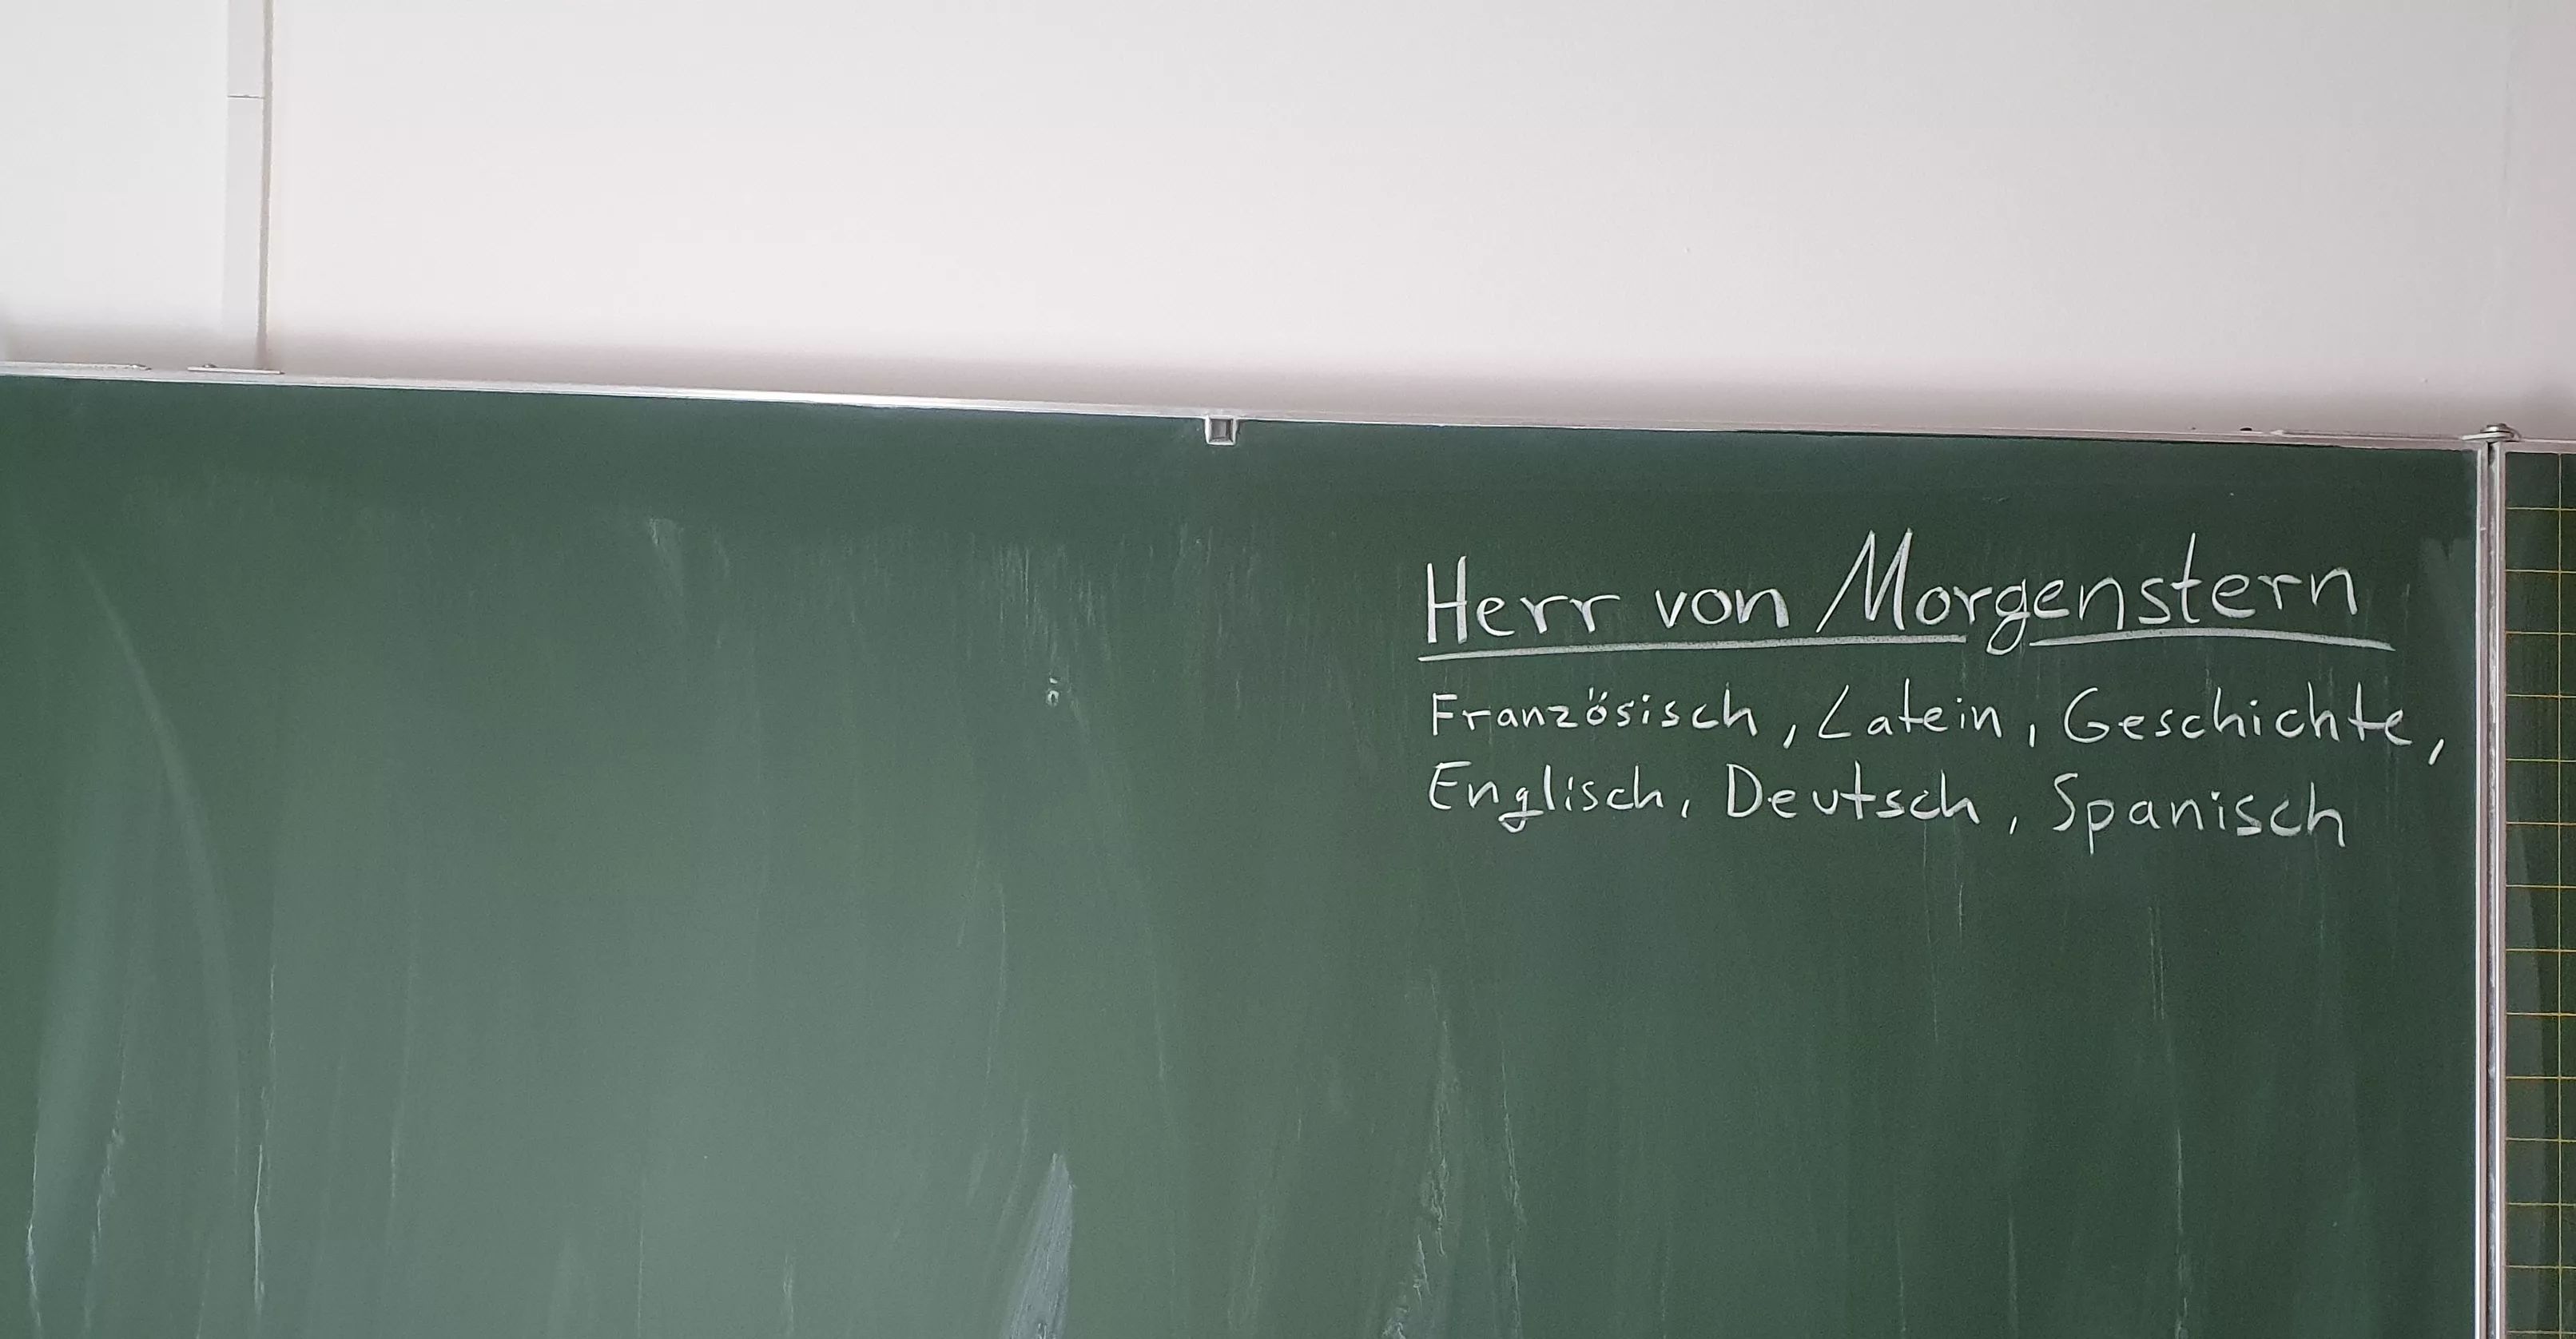 Herr von Morgenstern
Französisch, Latein, Geschichte,
Englisch, Deutsch, Spanisch